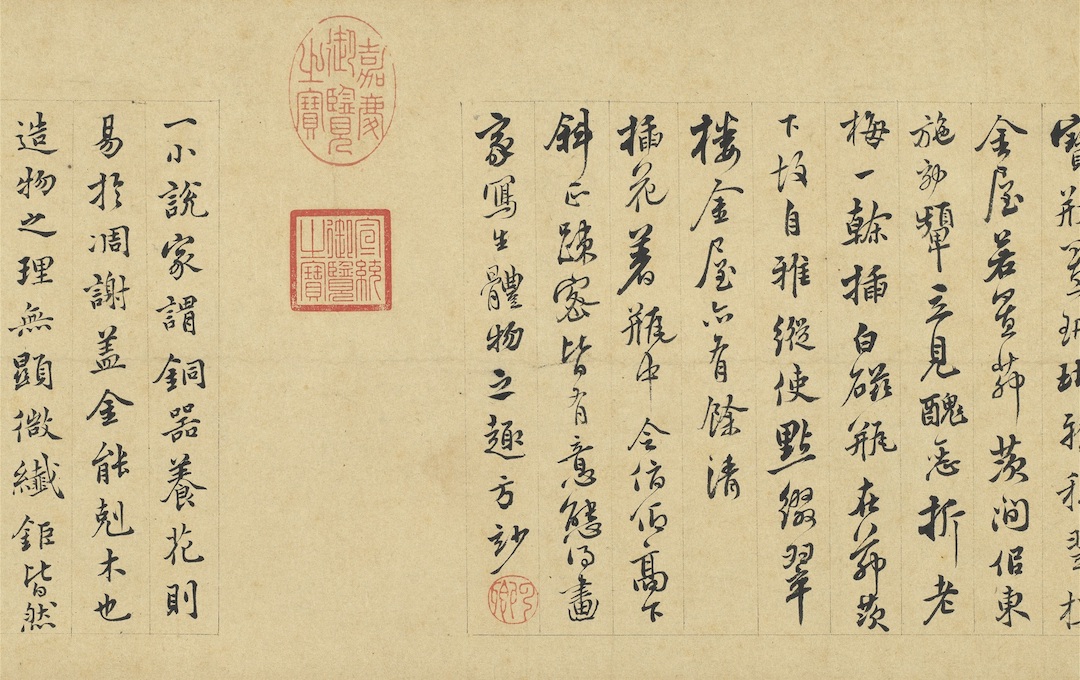 寶瓶雅翠
金屋若置茆茨澗侶東
施效顰立見醜惡折老
梅一榦插白磁瓶在茆茨
下故自雅縱使點綴翠
樓金屋亦有餘清
插花著瓶中令俯仰高下
斜正踈密皆有意態得畫
家寫生體物之趣方妙
嘉慶御覽之寶
宣統御覽之寶
一小說家謂銅器養花則
易於凋謝蓋金能剋木也
造物之理無顯微纖鉅皆然